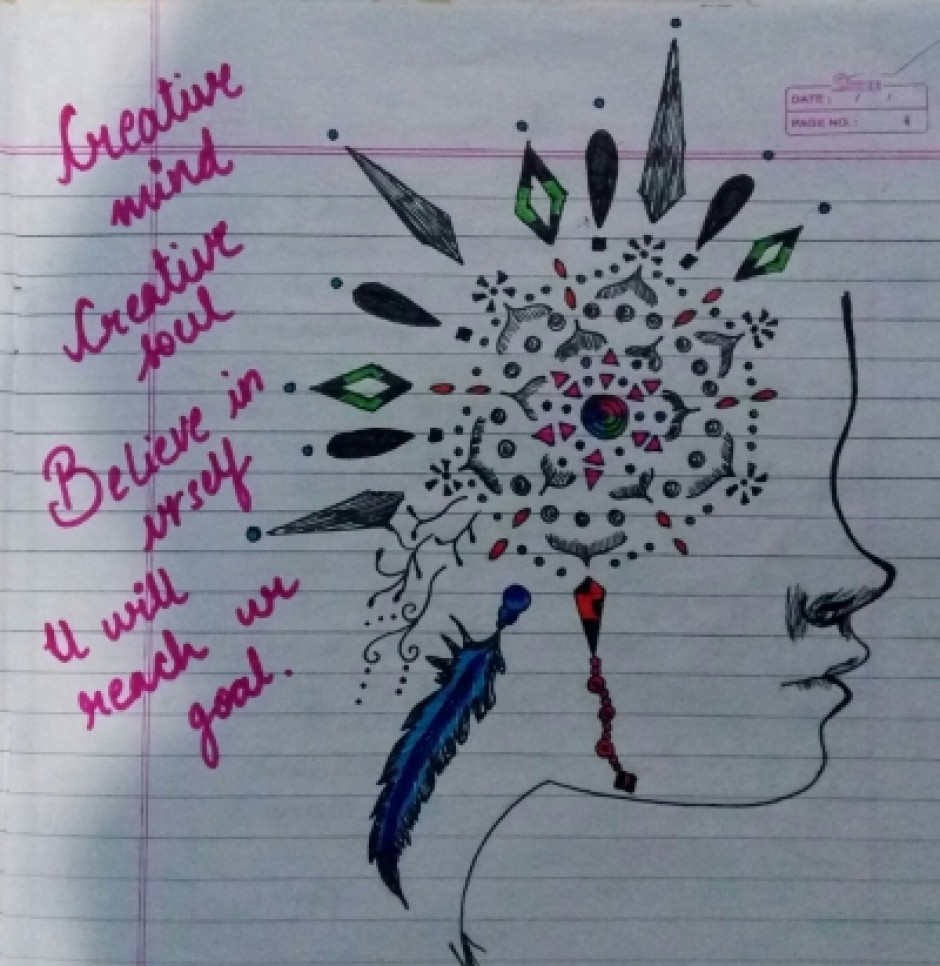 Creative
mind
Creative
soul
Believe in
urself
U will
reach ur
goal.
DATE: / /
PAGE NO.: